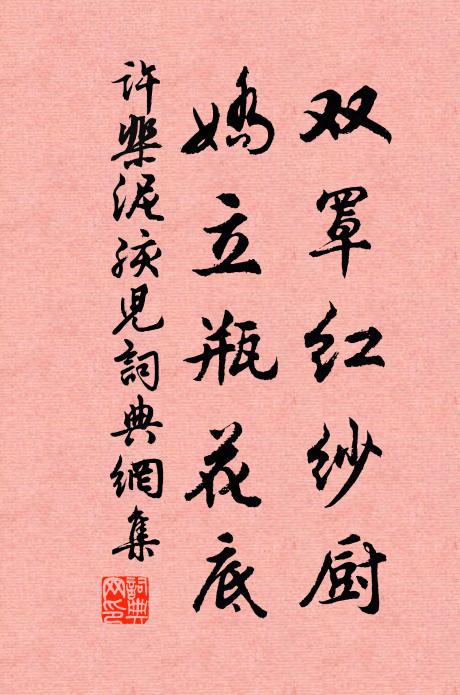 双罩红纱厨
娇立瓶花底
许棐泥孩儿詞典網集
詞典网印